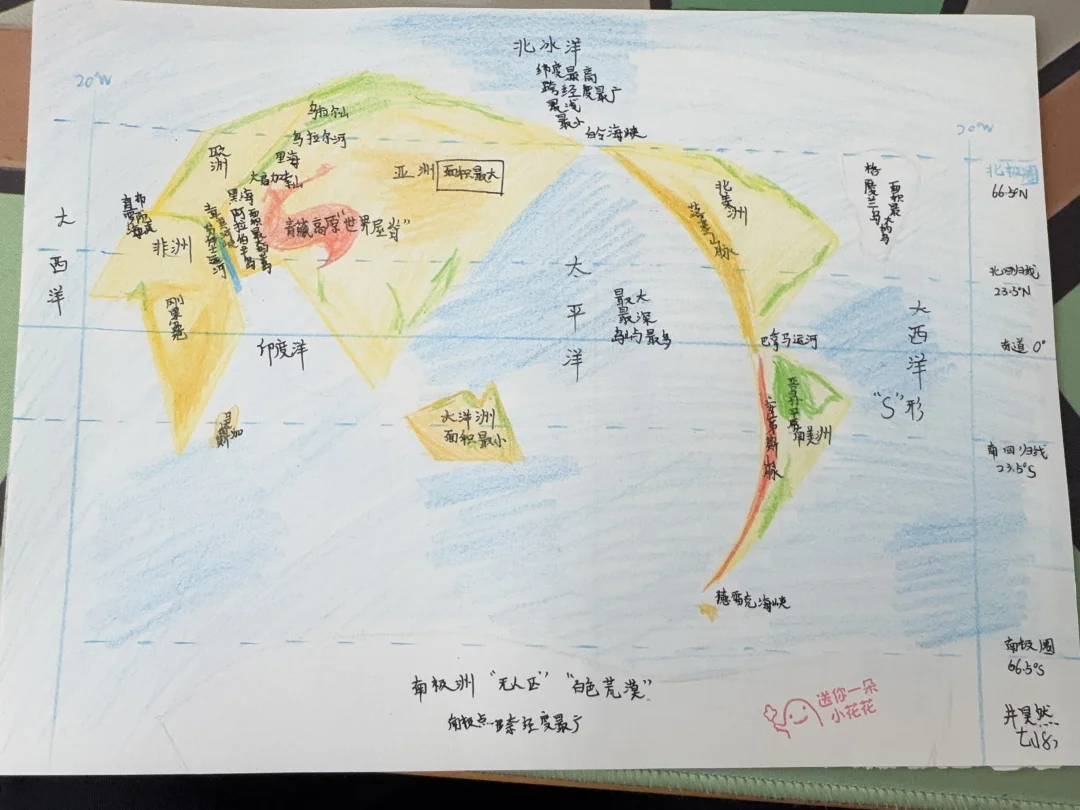 北冰洋
纬度最高
跨经度最广
最浅
最小
白令海峡
20°W
20°W
乌拉尔山
乌拉尔河
里海
大高加索山
黑海
欧洲
亚洲
面积最大
青藏高原"世界屋脊"
阿拉伯半岛
面积最大的半岛
非洲
刚果盆地
大西洋
印度洋
大洋洲
面积最小
太平洋
最大
最深
岛屿最多
北美洲
落基山脉
格陵兰岛
面积最大的岛
巴拿马运河
安第斯山脉
南美洲
德雷克海峡
大西洋
"S"形
北极圈
66.5°N
北回归线
23.5°N
赤道 0°
南回归线
23.5°S
南极圈
66.5°S
南极洲 "无人区" "白色荒漠"
南极点 跨经度最广
送你一朵
小花花